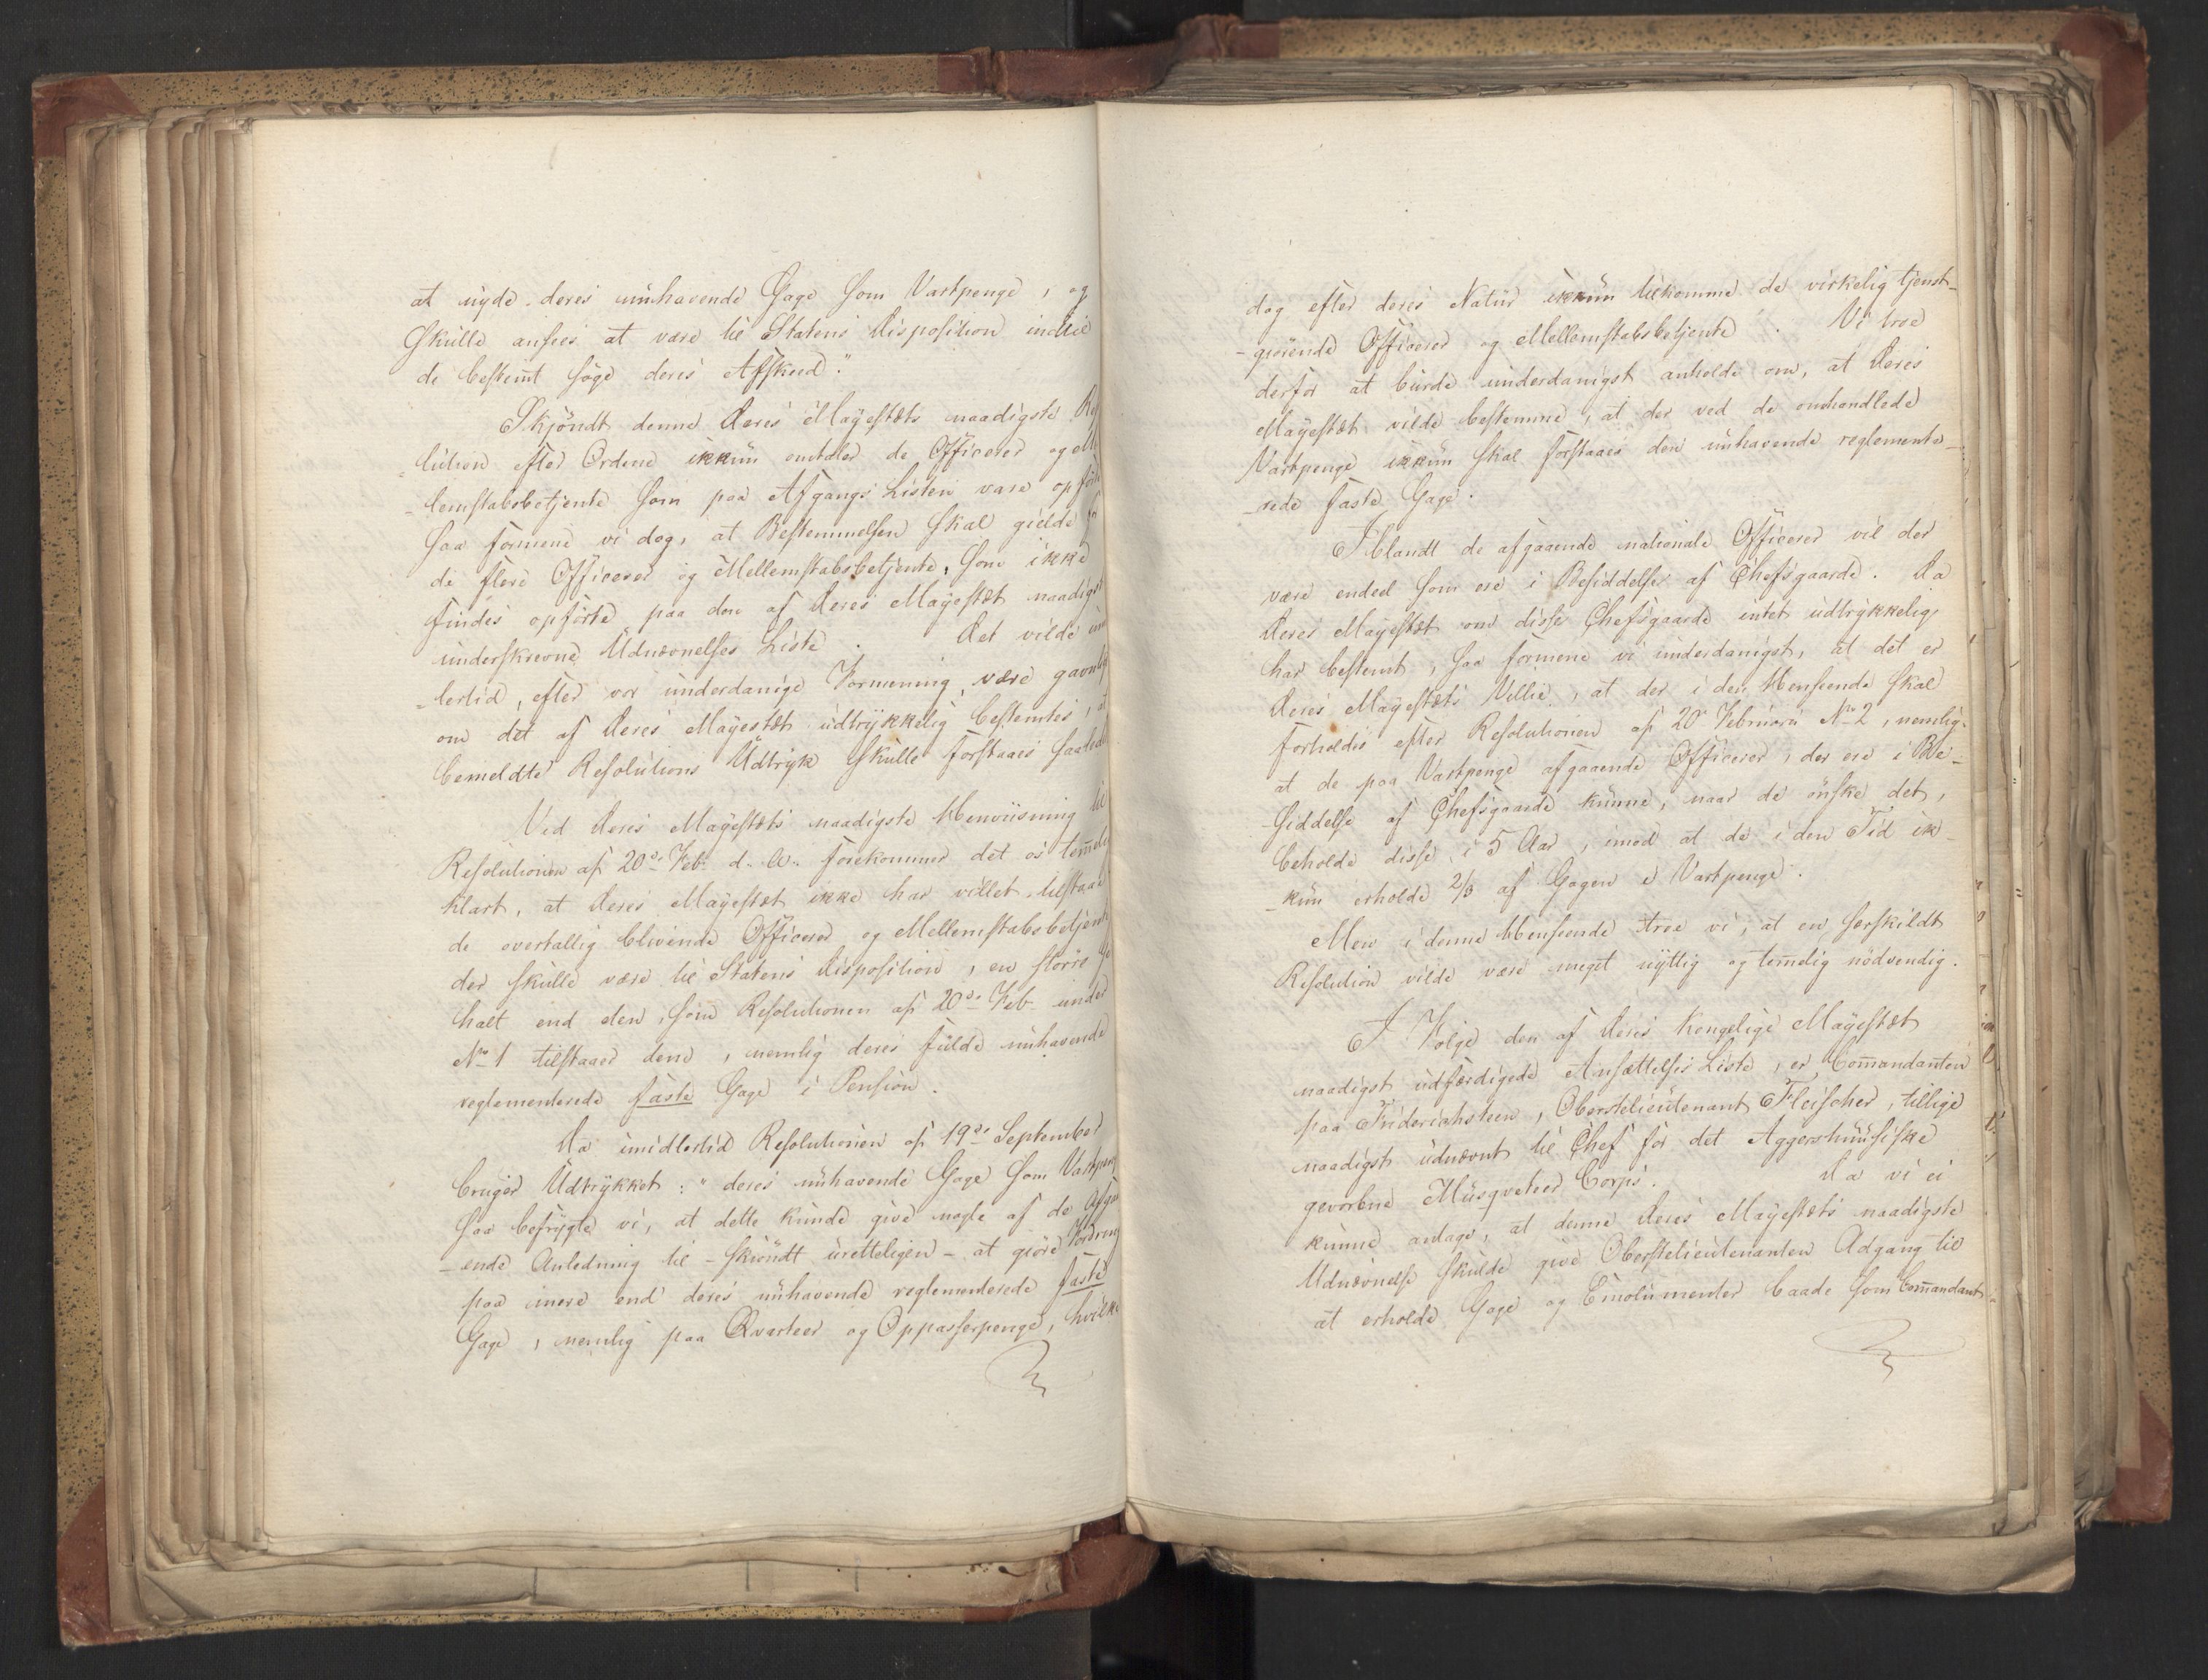 at nyde deres nuhavende Gage som Vartpenge, og
skulle ansees at være til Statens Disposition indtil
de bestemt søge deres Afskeed."
Skjøndt denne Deres Majestæts naadigste Res
-lution efter Ordene ikkun omtaler de Officerer og Mel
-lemstabsbetjente som paa Afgangs Listen vare opførte
saa formene vi dog, at Bestemmelsen skal gielde for
de flere Officerer og Mellemstabsbetjente, som ikke
findes opførte paa den af Deres Majestæt naadigst
underskrevne Udnævnelses Liste. Det vilde im
-lertid, efter vor underdanige Formening, være gavnligt
om det af Deres Majestæt udtrykkelig bestemtes, at
bemeldte Resolutions Udtryk skulle forstaaes saaled
Ved Deres Majestæts naadigste Henviisning til
Resolutionen af 20de Feb. d. A. forekommer det os temel
klart, at Deres Majestæt ikke har villet tilstaae
de overtallig blivende Officerer og Mellemstabsbetjent
der skulle være til Statens Disposition, en større Ge
halt end den, som Resolutionen af 20de Feb. under
No 1 tilstaaer dem, nemlig deres fulde nuhavende
reglementerede faste Gage i Pension.
Da imidlertid Resolutionen af 19de September
bruger Udtrykket: "deres nuhavende Gage som Vartpeng
saa befrygte vi, at dette kunde give nogle af de Afgaa
-ende Anledning til - skiøndt uretteligen - at giøre Fordring
paa mere end deres nuhavende reglementerede faste
Gage, nemlig paa Qvarteer og Oppasserpenge, hvilke
dog efter deres Natur ikkun tilkomme de virkelig tjenst-
-giørende Officerer og Mellemstabsbetjente. Vi troe
derfor at burde underdanigst anholde om, at Deres
Majestæt vilde bestemme, at der ved de omhandlede
Vartpenge ikkun skal forstaaes den nuhavende reglemente-
-rede faste Gage.
Iblandt de afgaaende nationale Officerer vil der
være endeel som ere i Besiddelse af Chefsgaarde. Da
Deres Majestæt om disse Chefsgaarde intet udtrykkelig
har bestemt, saa formene vi underdanigst, at det er
Deres Majestæts Villie, at der i den Henseende skal
forholdes efter Resolutionen af 20de Februari No 2, nemlig
at de paa Vartpenge afgaaende Officerer, der ere i Be-
-siddelse af Chefsgaarde kunne, naar de ønske det,
beholde disse i 5 Aar, imod at de i den Tid ik-
-kun erholde 2/3 af Gagen i Vartpenge.
Men i denne Henseende troe vi, at en særskildt
Resolution vilde være meget nyttig og temelig nødvendig.
I Følge den af Deres Kongelige Majestæt
naadigst udfærdigede Ansættelses Liste, er Commandanten
paa Friderichsteen, Oberstelieutenant Fleischer, tillige
naadigst udnævnt til Chef for det Aggershuusiske
gevorbne Musqveteer Corps. Da vi ei
kunne antage, at denne Deres Majestæts naadigste
Udnævnelse skulde give Oberstelieutenanten Adgang til
at erholde Gage og Emolumenter baade som Commandant